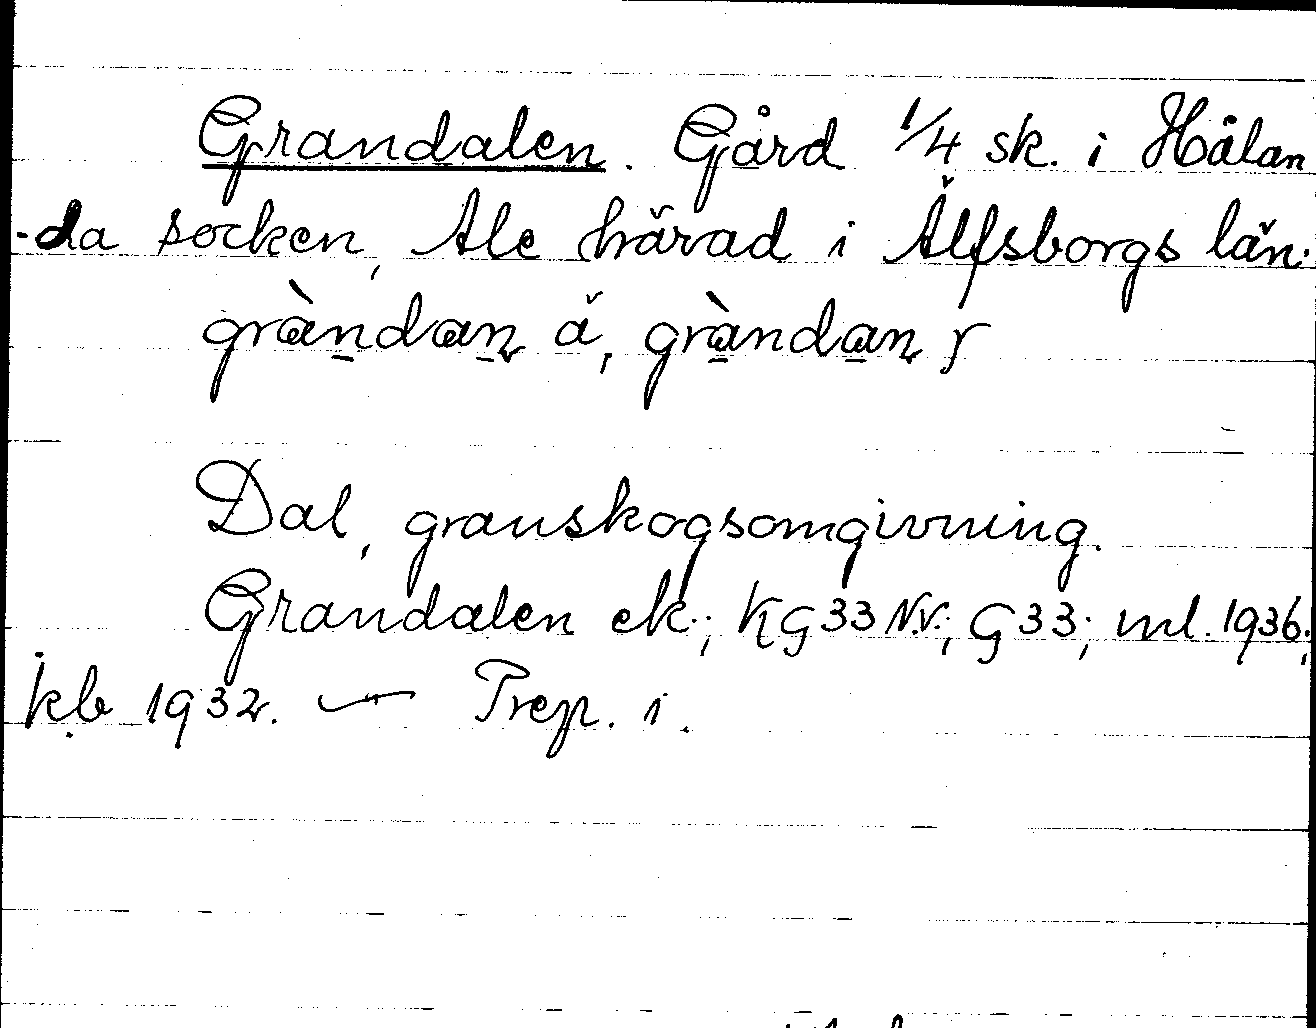 Grandalen. Gård 1/4 sk. i Hålan
-da socken, Ale härad i Älfsborgs län.
gràndan ä, gràndan
Dal, granskogsomgivning.
Grandalen ek; KG33 N.V.; G33; ml. 1936;
kb 1932. — Prep. i.